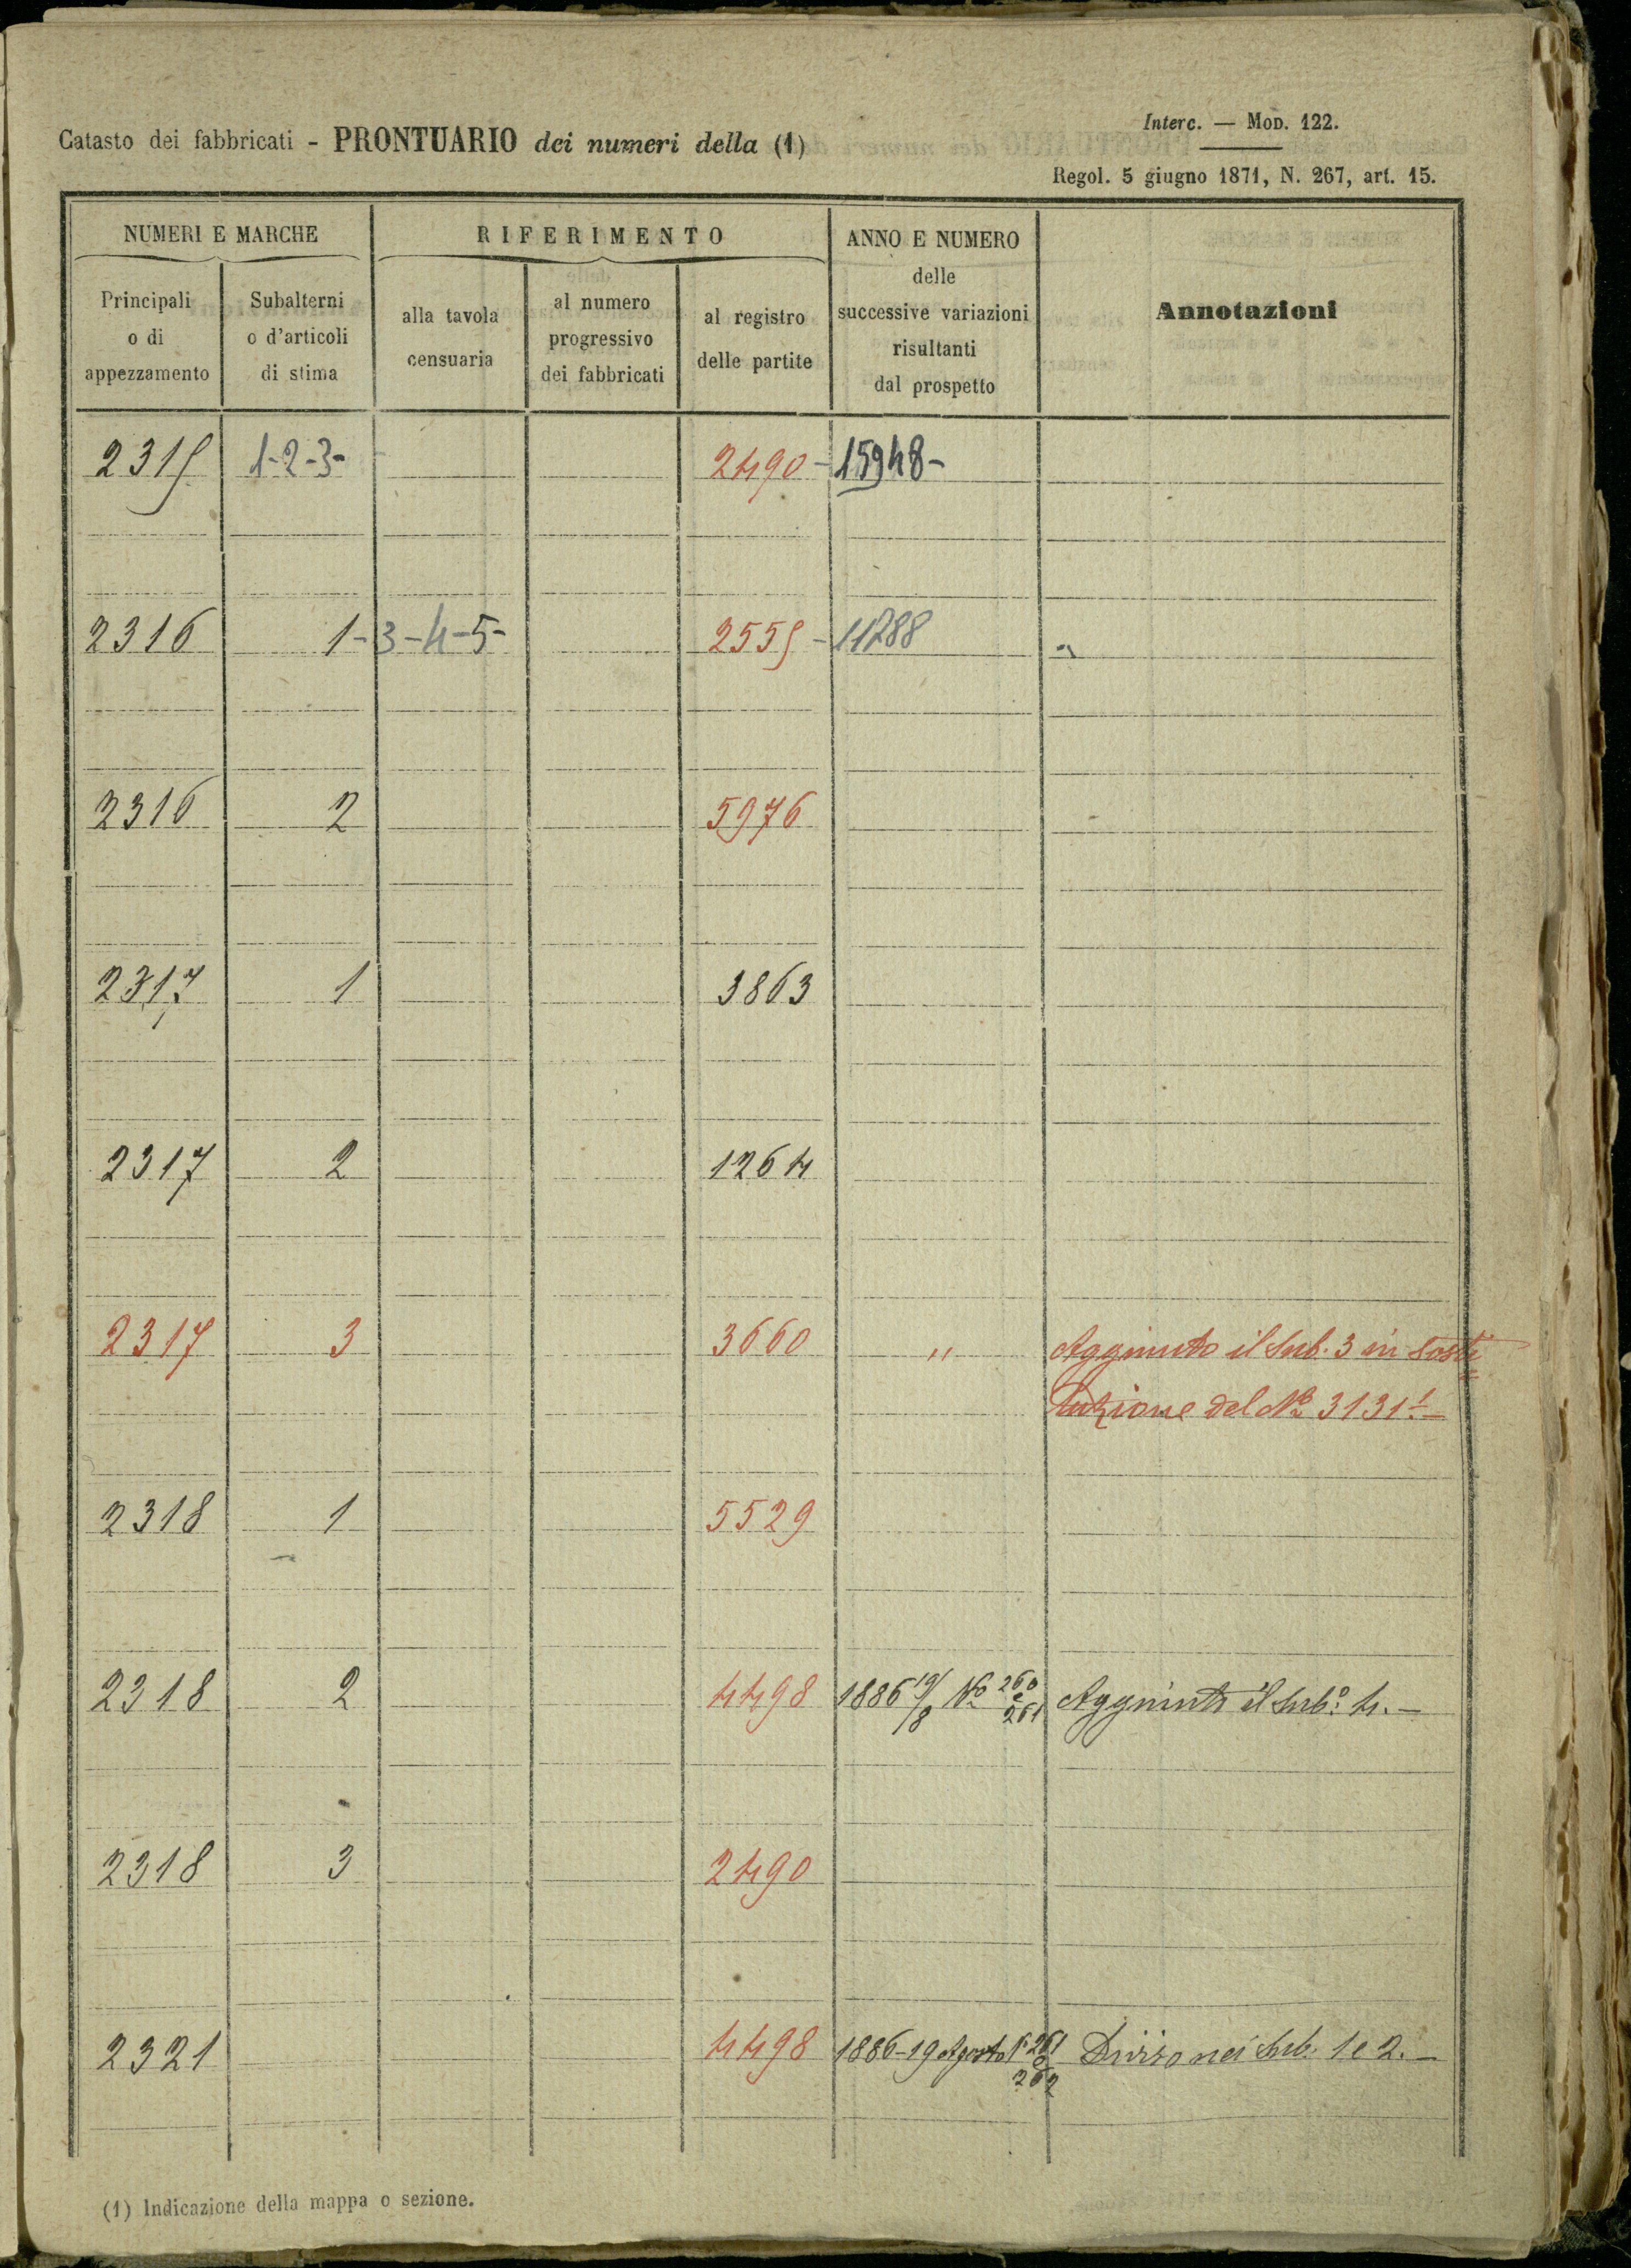 Interc. — Mod. 122.
Catasto dei fabbricati - PRONTUARIO dei numeri della (1)
Regol. 5 giugno 1871, N. 267, art. 15.
NUMERI E MARCHE
RIFERIMENTO
ANNO E NUMERO
delle
successive variazioni
risultanti
dal prospetto
Annotazioni
Principali
o di
appezzamento
Subalterni
o d'articoli
di stima
alla tavola
censuaria
al numero
progressivo
dei fabbricati
al registro
delle partite
2315 1-2-3- 2490 - 15948-
2316 1-3-4-5- 2555 - 11288 "
2316 2 5976
2317 1 3863
2317 2 1264
2317 3 3660 " Aggiunto il Sub. 3 in sosti
tuzione del No 3131 1 —
2318 1 5529
2318 2 4498 1886 19/8 No 260 e 261 Aggiunto il Subo. 4. —
2318 3 2490
2321 4498 1886-19 Agosto No 261 e 262 Diviso nei Sub. 1 e 2. —
(1) Indicazione della mappa o sezione.